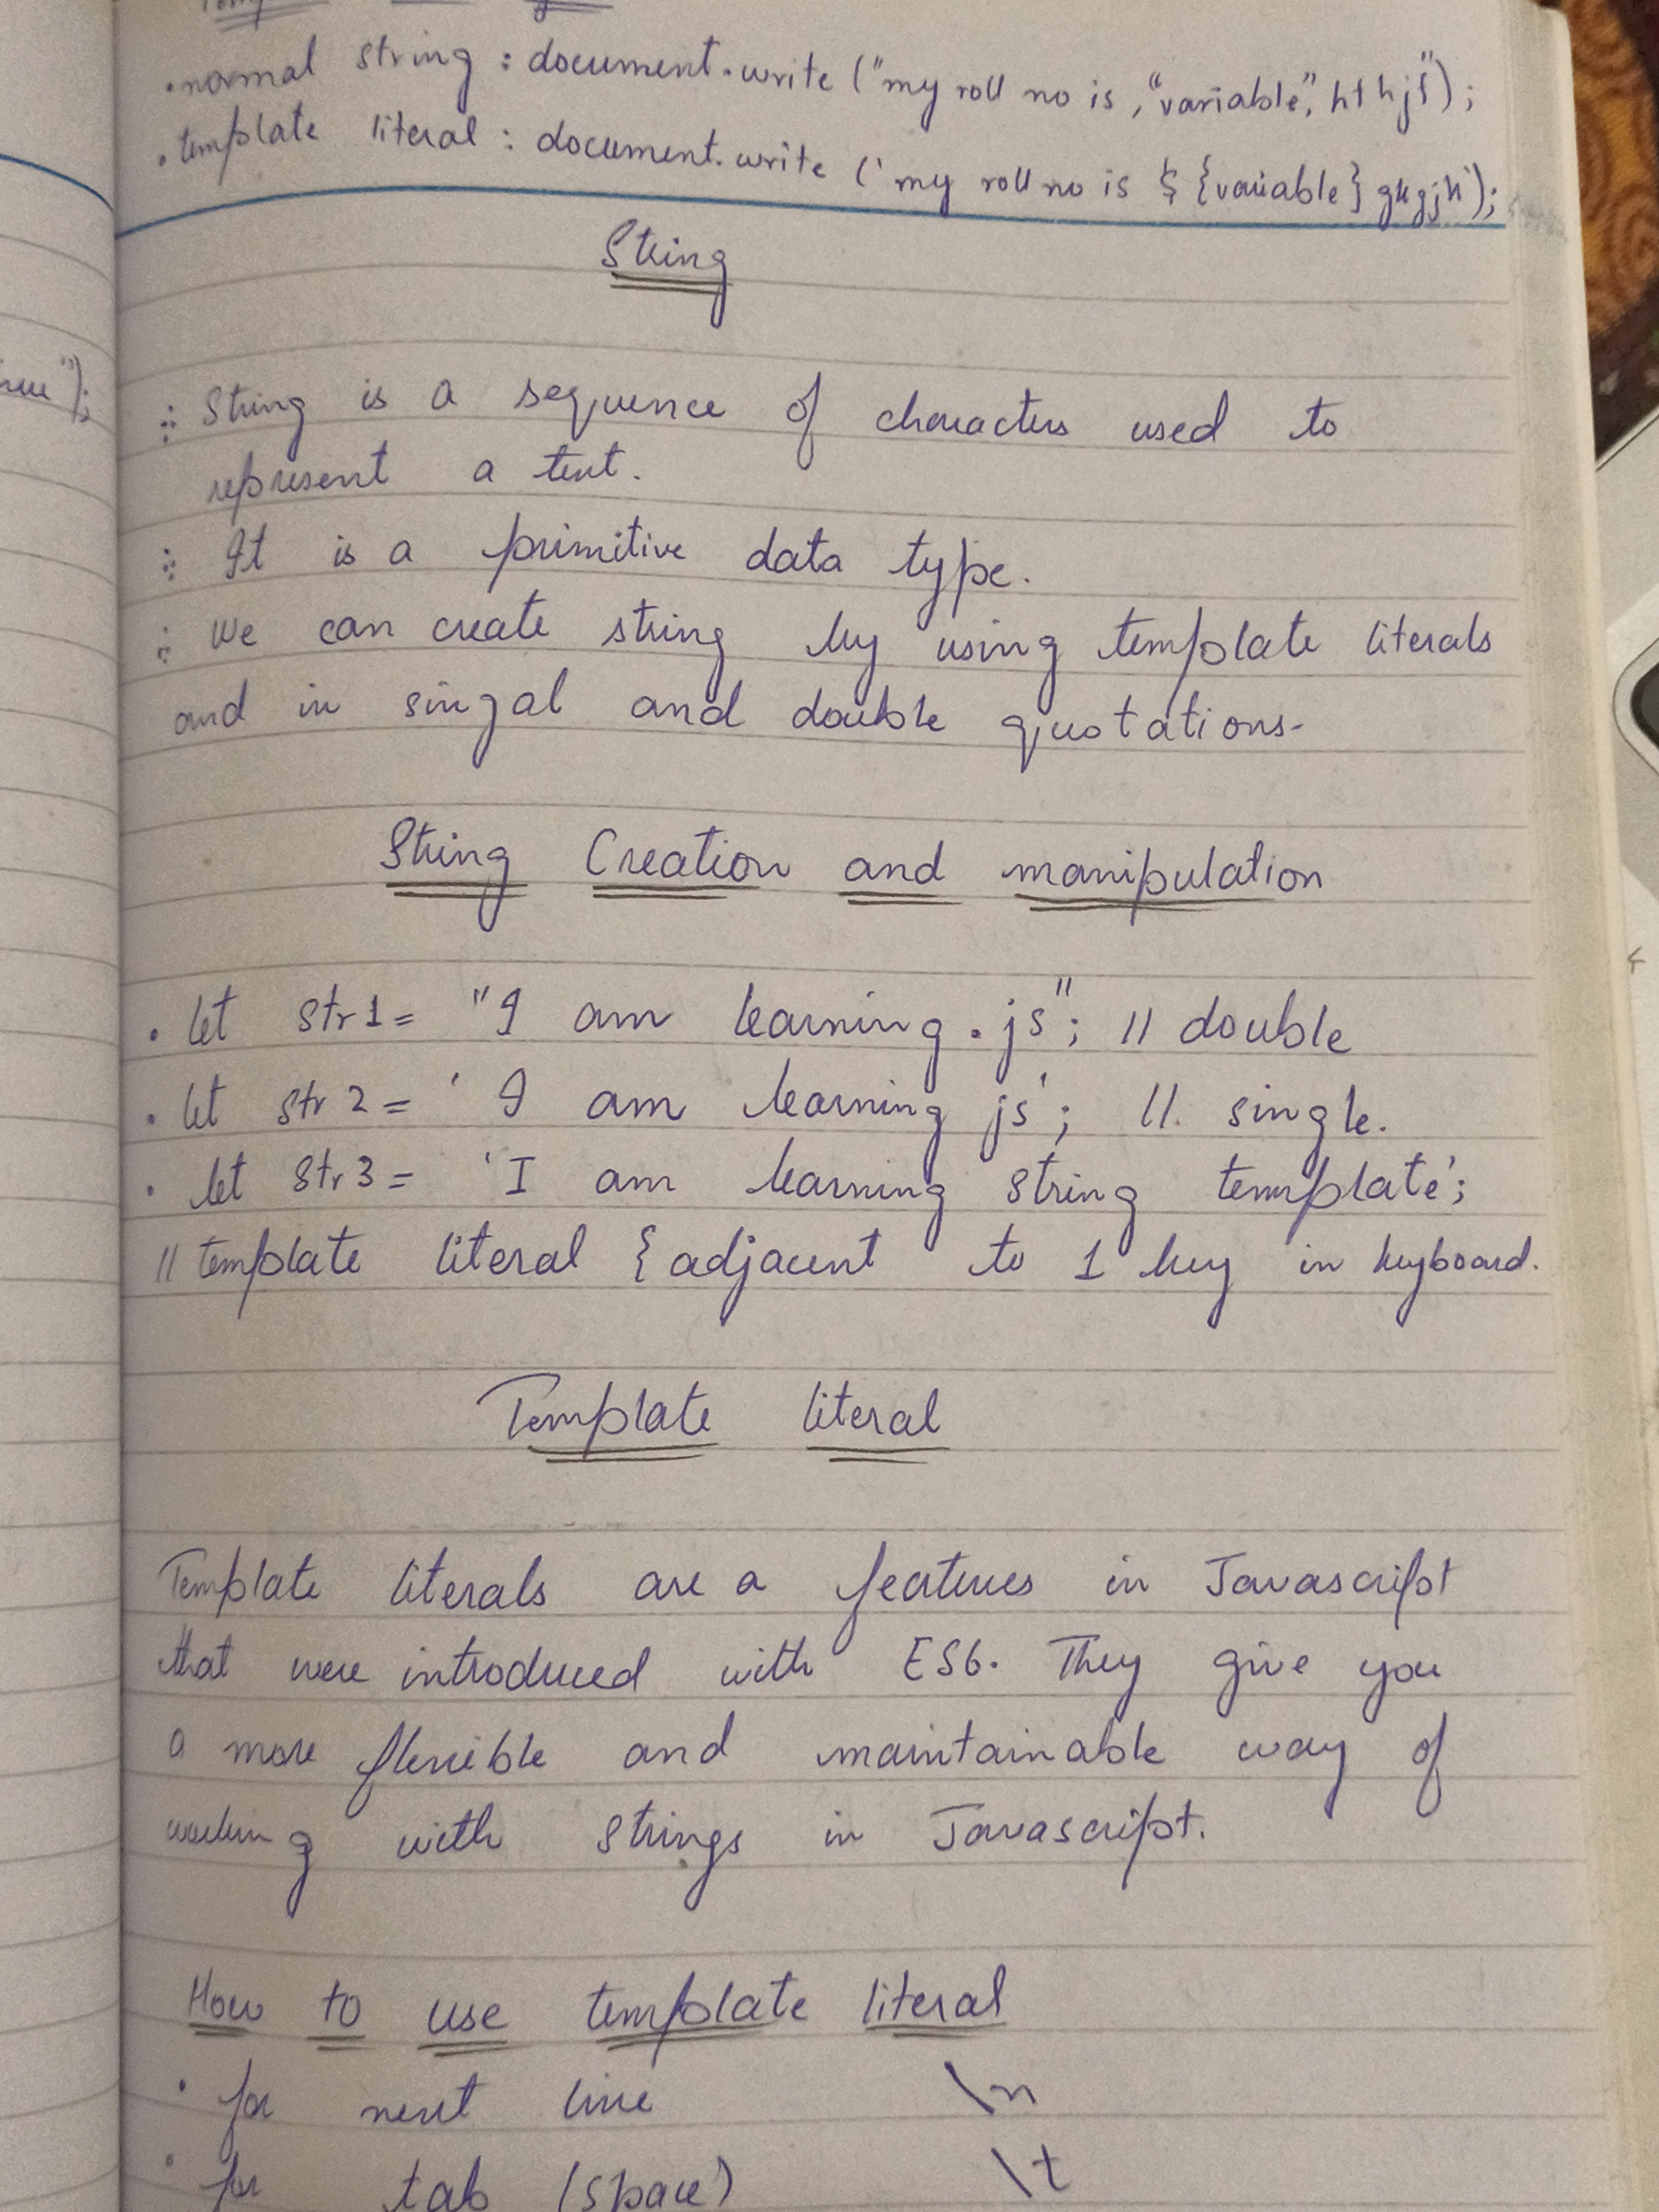 •normal string : document.write ("my roll no is ,"variable",
•template literal : document.write (`my roll no is ${variable} gkgjh`);
String
∴ String is a sequence of characters used to
represent a text.
∴ It is a primitive data type.
∴ We can create string by using template literals
and in singal and double quotations-
String Creation and manipulation
• let str1= "I am learning.js"; // double
• let str2= ' I am learning js'; //. single.
• let str3= 'I am learning string template';
// template literal { adjacent to 1 key in keyboard.
Template literal
Template literals are a features in Javascript
that were introduced with ES6. They give you
a more flexible and maintainable way of
working with strings in Javascript.
How to use template literal
• for next line \n
• for tab (space) \t